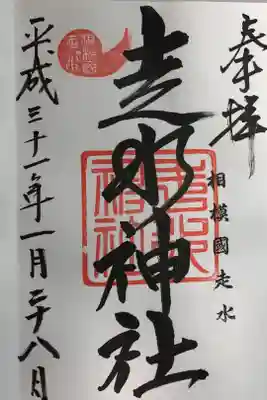 奉拝
相模國走水
走水神社
平成三十一年一月二十八日